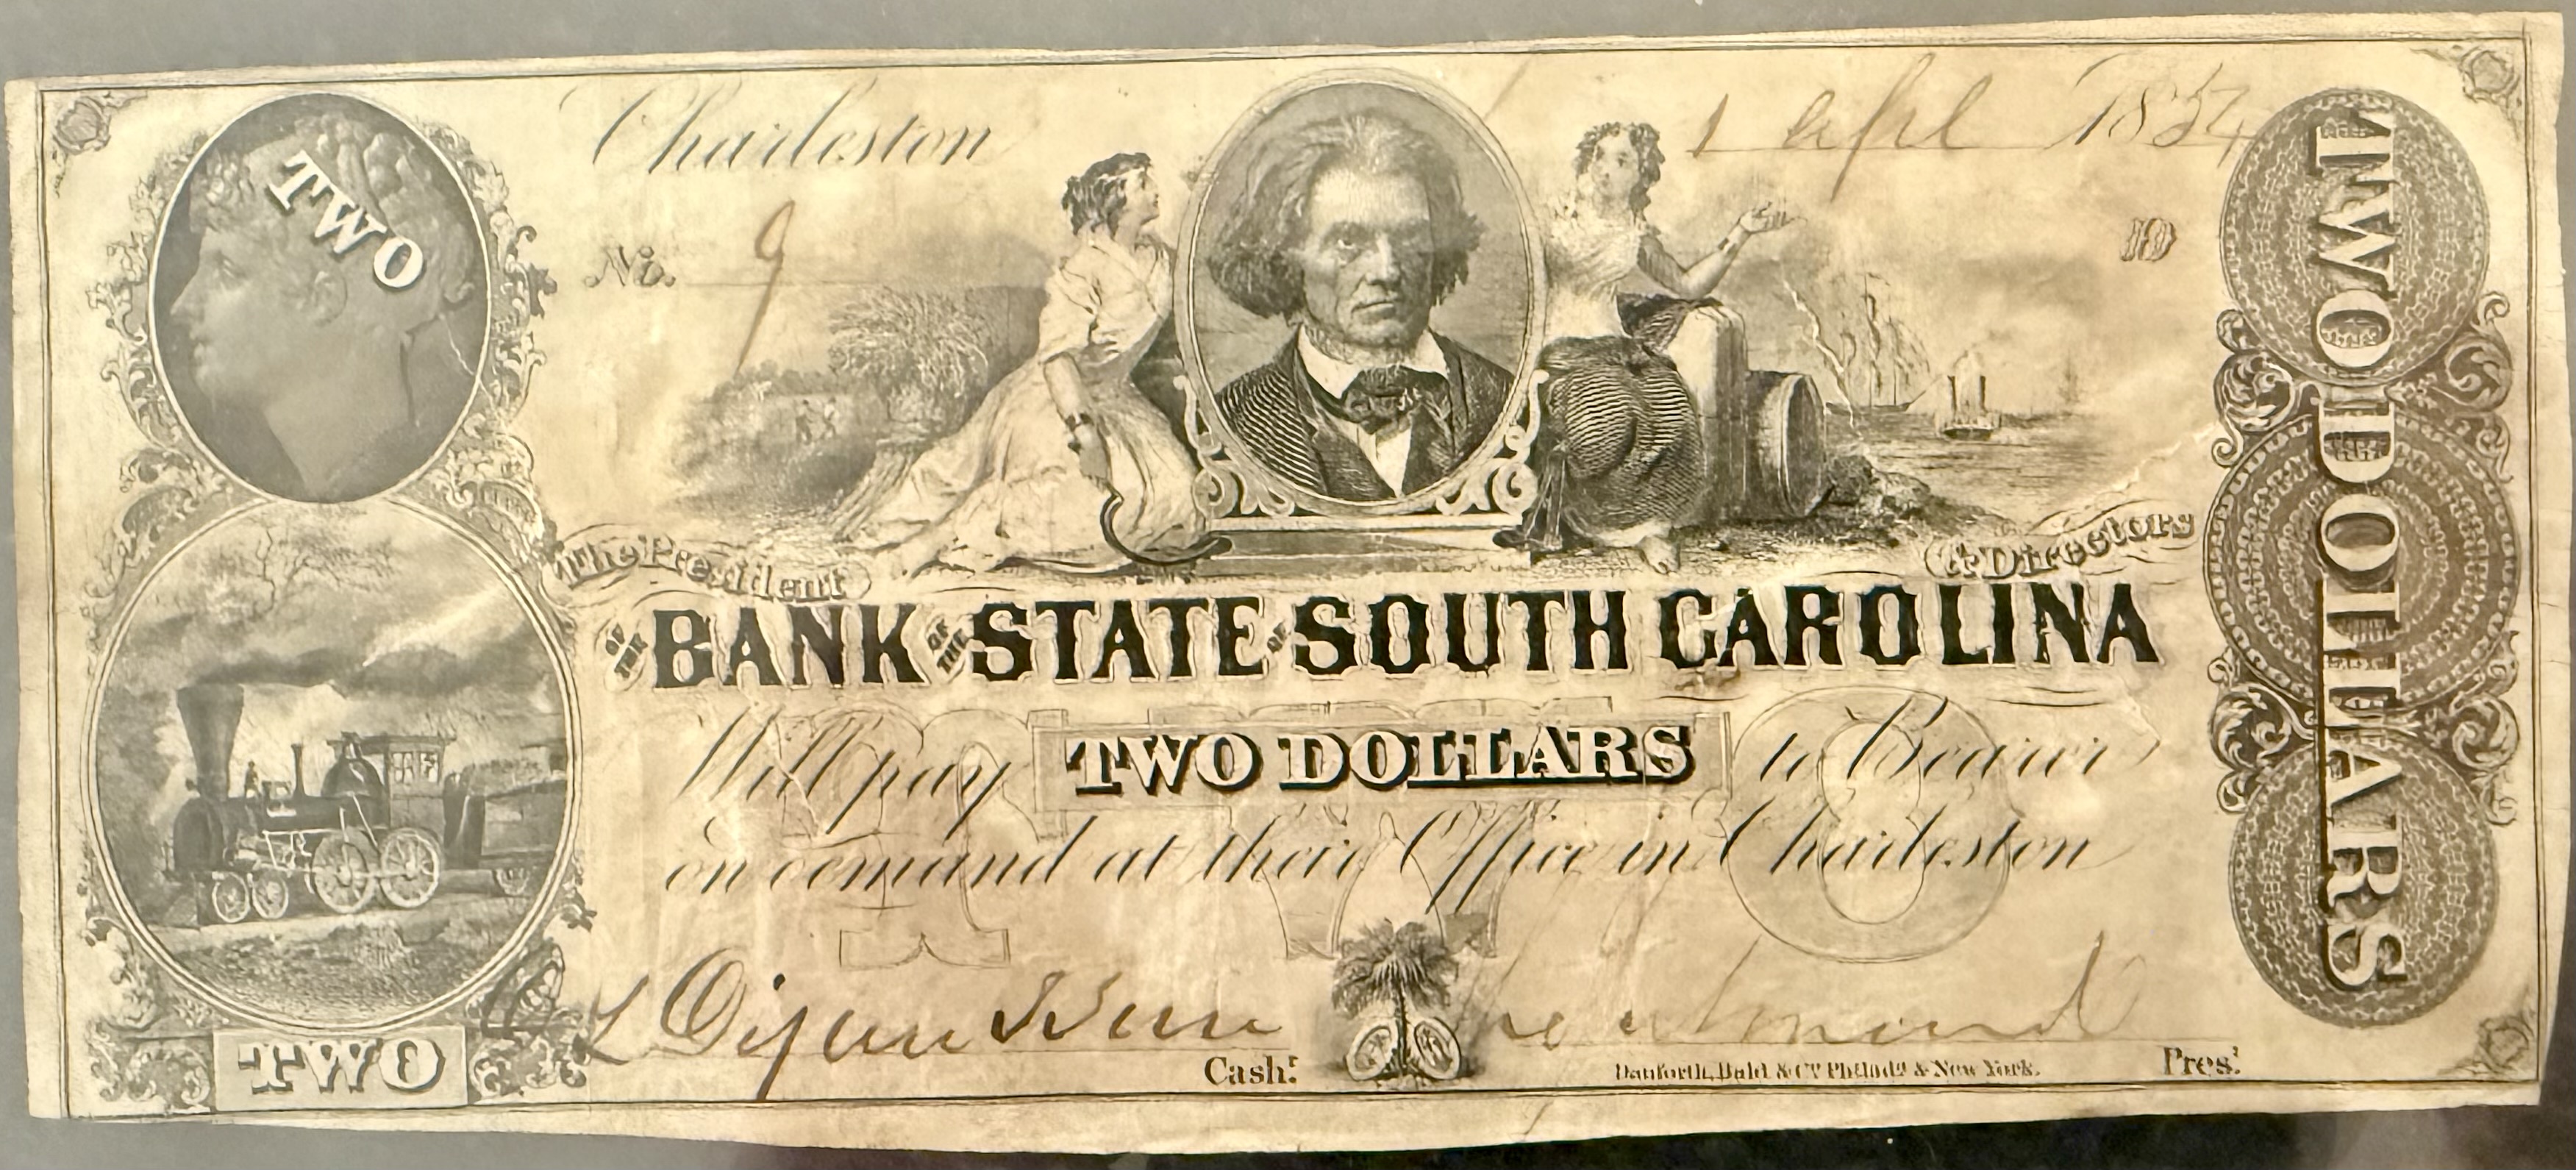 TWO
Charleston
1 apl 1854
No. 9
TWO DOLLARS
The President
& Directors
OF THE BANK OF THE STATE OF SOUTH CAROLINA
Will pay TWO DOLLARS to Bearer
on demand at their Office in Charleston
TWO
Cash.r
Danforth, Bald & Co. Philada. & New York.
Pres.t
TWO